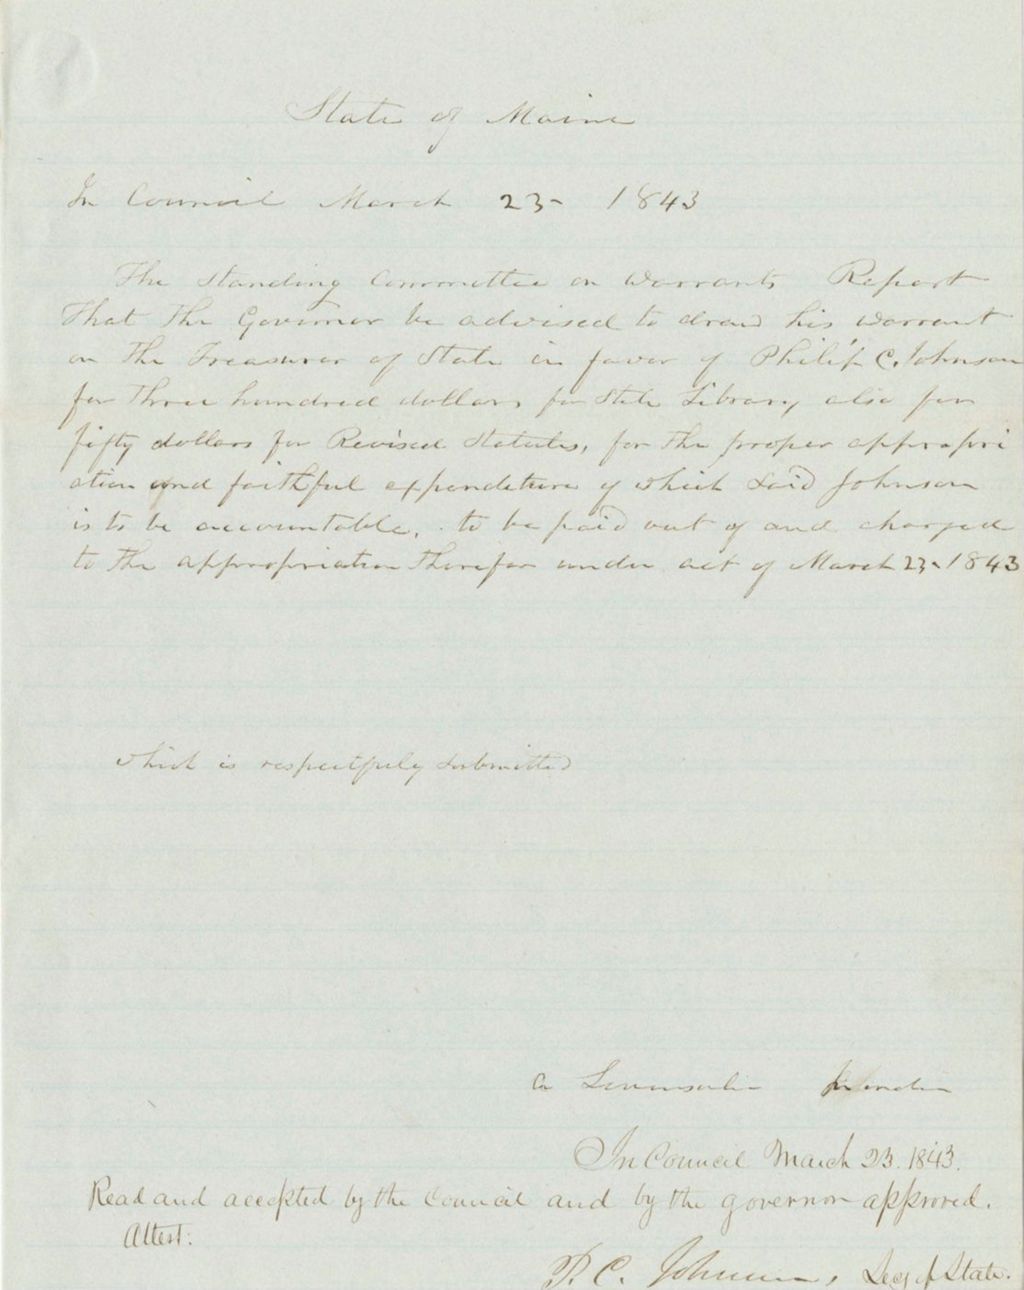 State of Maine
In Council March 23- 1843
The Standing Committee on Warrants Report
That the Governor be advised to draw his warrant
on the Treasurer of State in favor of Philip C. Johnson
for three hundred dollars, for State Library also for
fifty dollars for Revised Statutes, for the proper appropri
ation and faithful expenditure of which said Johnson
is to be accountable, to be paid out of and charged
to the appropriation therefor under act of March 23- 1843
which is respectfully submitted
In Council March 23. 1843.
Read and accepted by the Council and by the governor approved.
Attest:
P. C. Johnson, Secy of State.